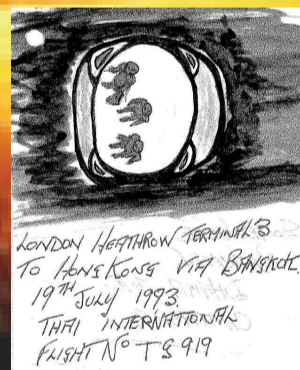 LONDON HEATHROW TERMINAL 3
TO HONG KONG VIA BANGKOK
19TH JULY 1993
THAI INTERNATIONAL
FLIGHT No TG 919